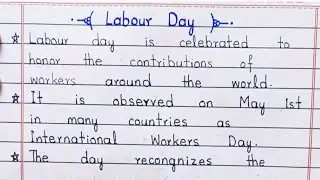 Labour Day
☆ Labour day is celebrated to
honor the contributions of
workers around the world.
☆ It is observed on May 1st
in many countries as
International Workers Day.
☆ The day recongnizes the